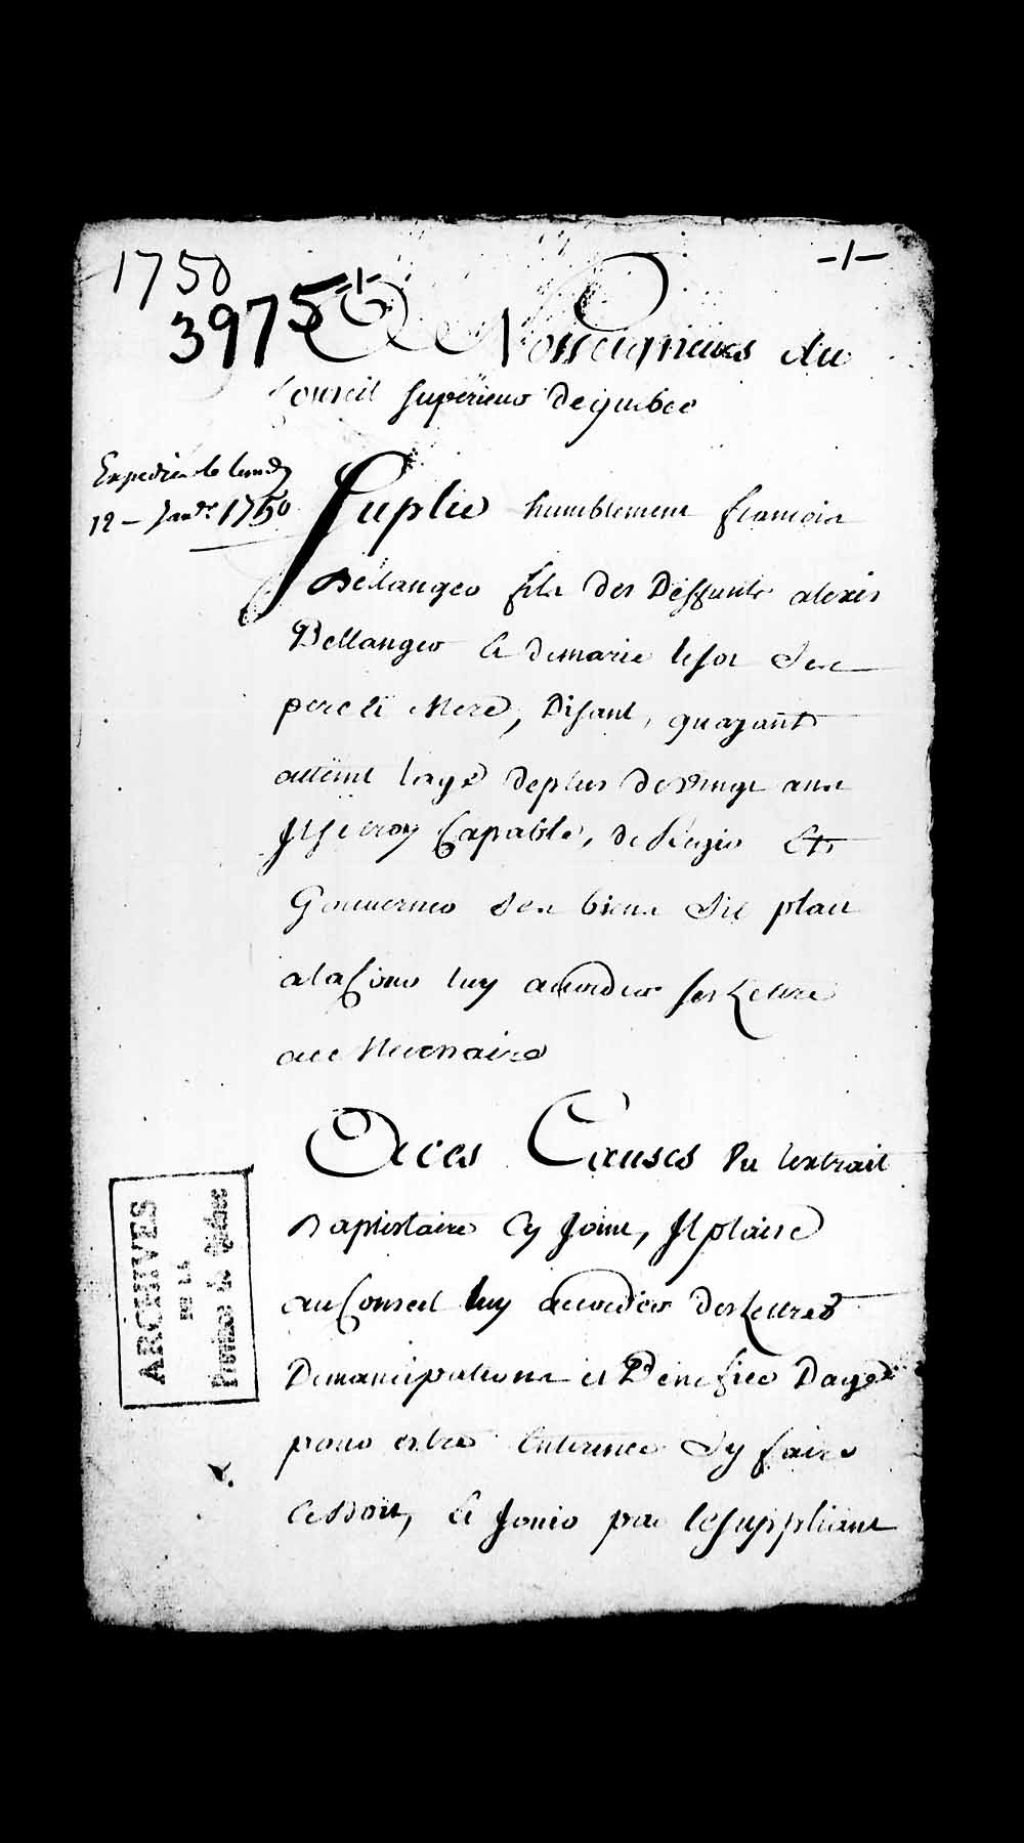 1750
-1-
3975
A Nosseigneurs du
Conseil Superieur de quebec
Expedié le lundy
12 - Janr. 1750
Suplie humblement francois
Bellanger fils des Deffunts alexis
Bellanger & de marie ses
pere & Mere, Disant, quayant
atteint lage de plus de Vingt ans
Il se croy Capable, de Regir Et
Gouverner Ses biens Sil plait
a la Cour luy accorder ses Lettre
A ces Causes Vu lextrait
Baptistaire Cy Joint, Il plaise
au Conseil luy accorder des Lettres
Demancipations et Benefice Dage
pour estre Enterinee Sy faire
Ce Doit, & Jouir par le Suppliant
ARCHIVES
DE LA
Province de Québec